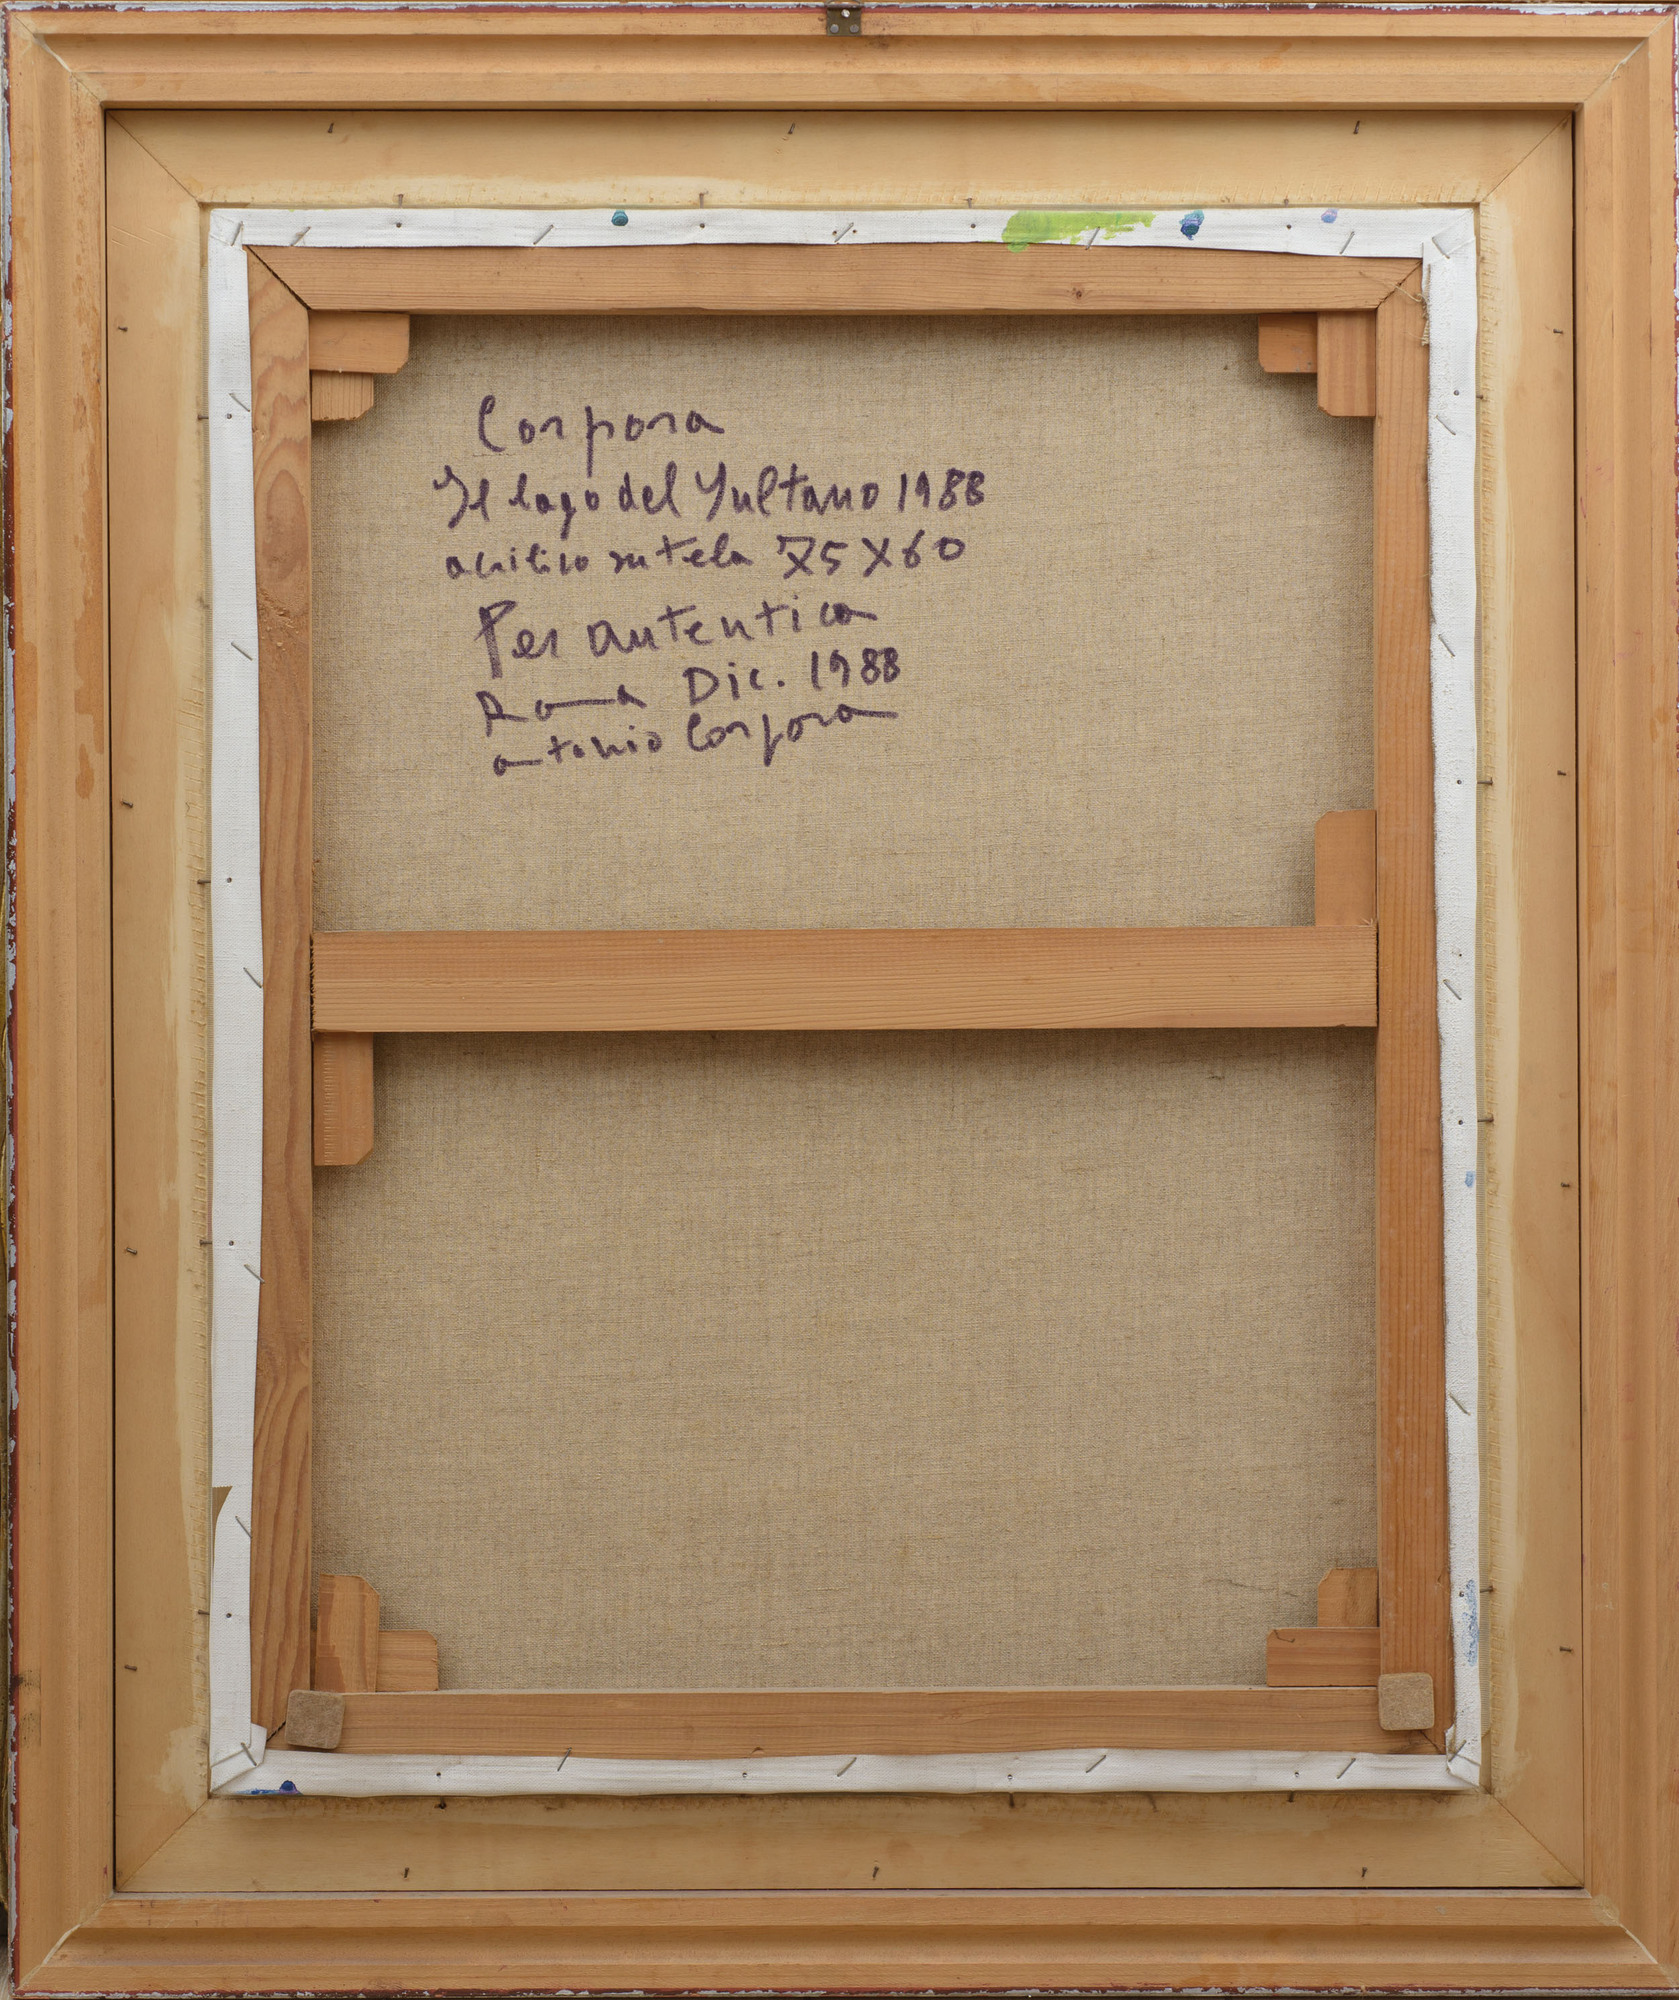 Corpora
Il lago del Sultano 1988
acrilico su tela 75X60
Per autentica
Roma Dic. 1988
antonio Corpora